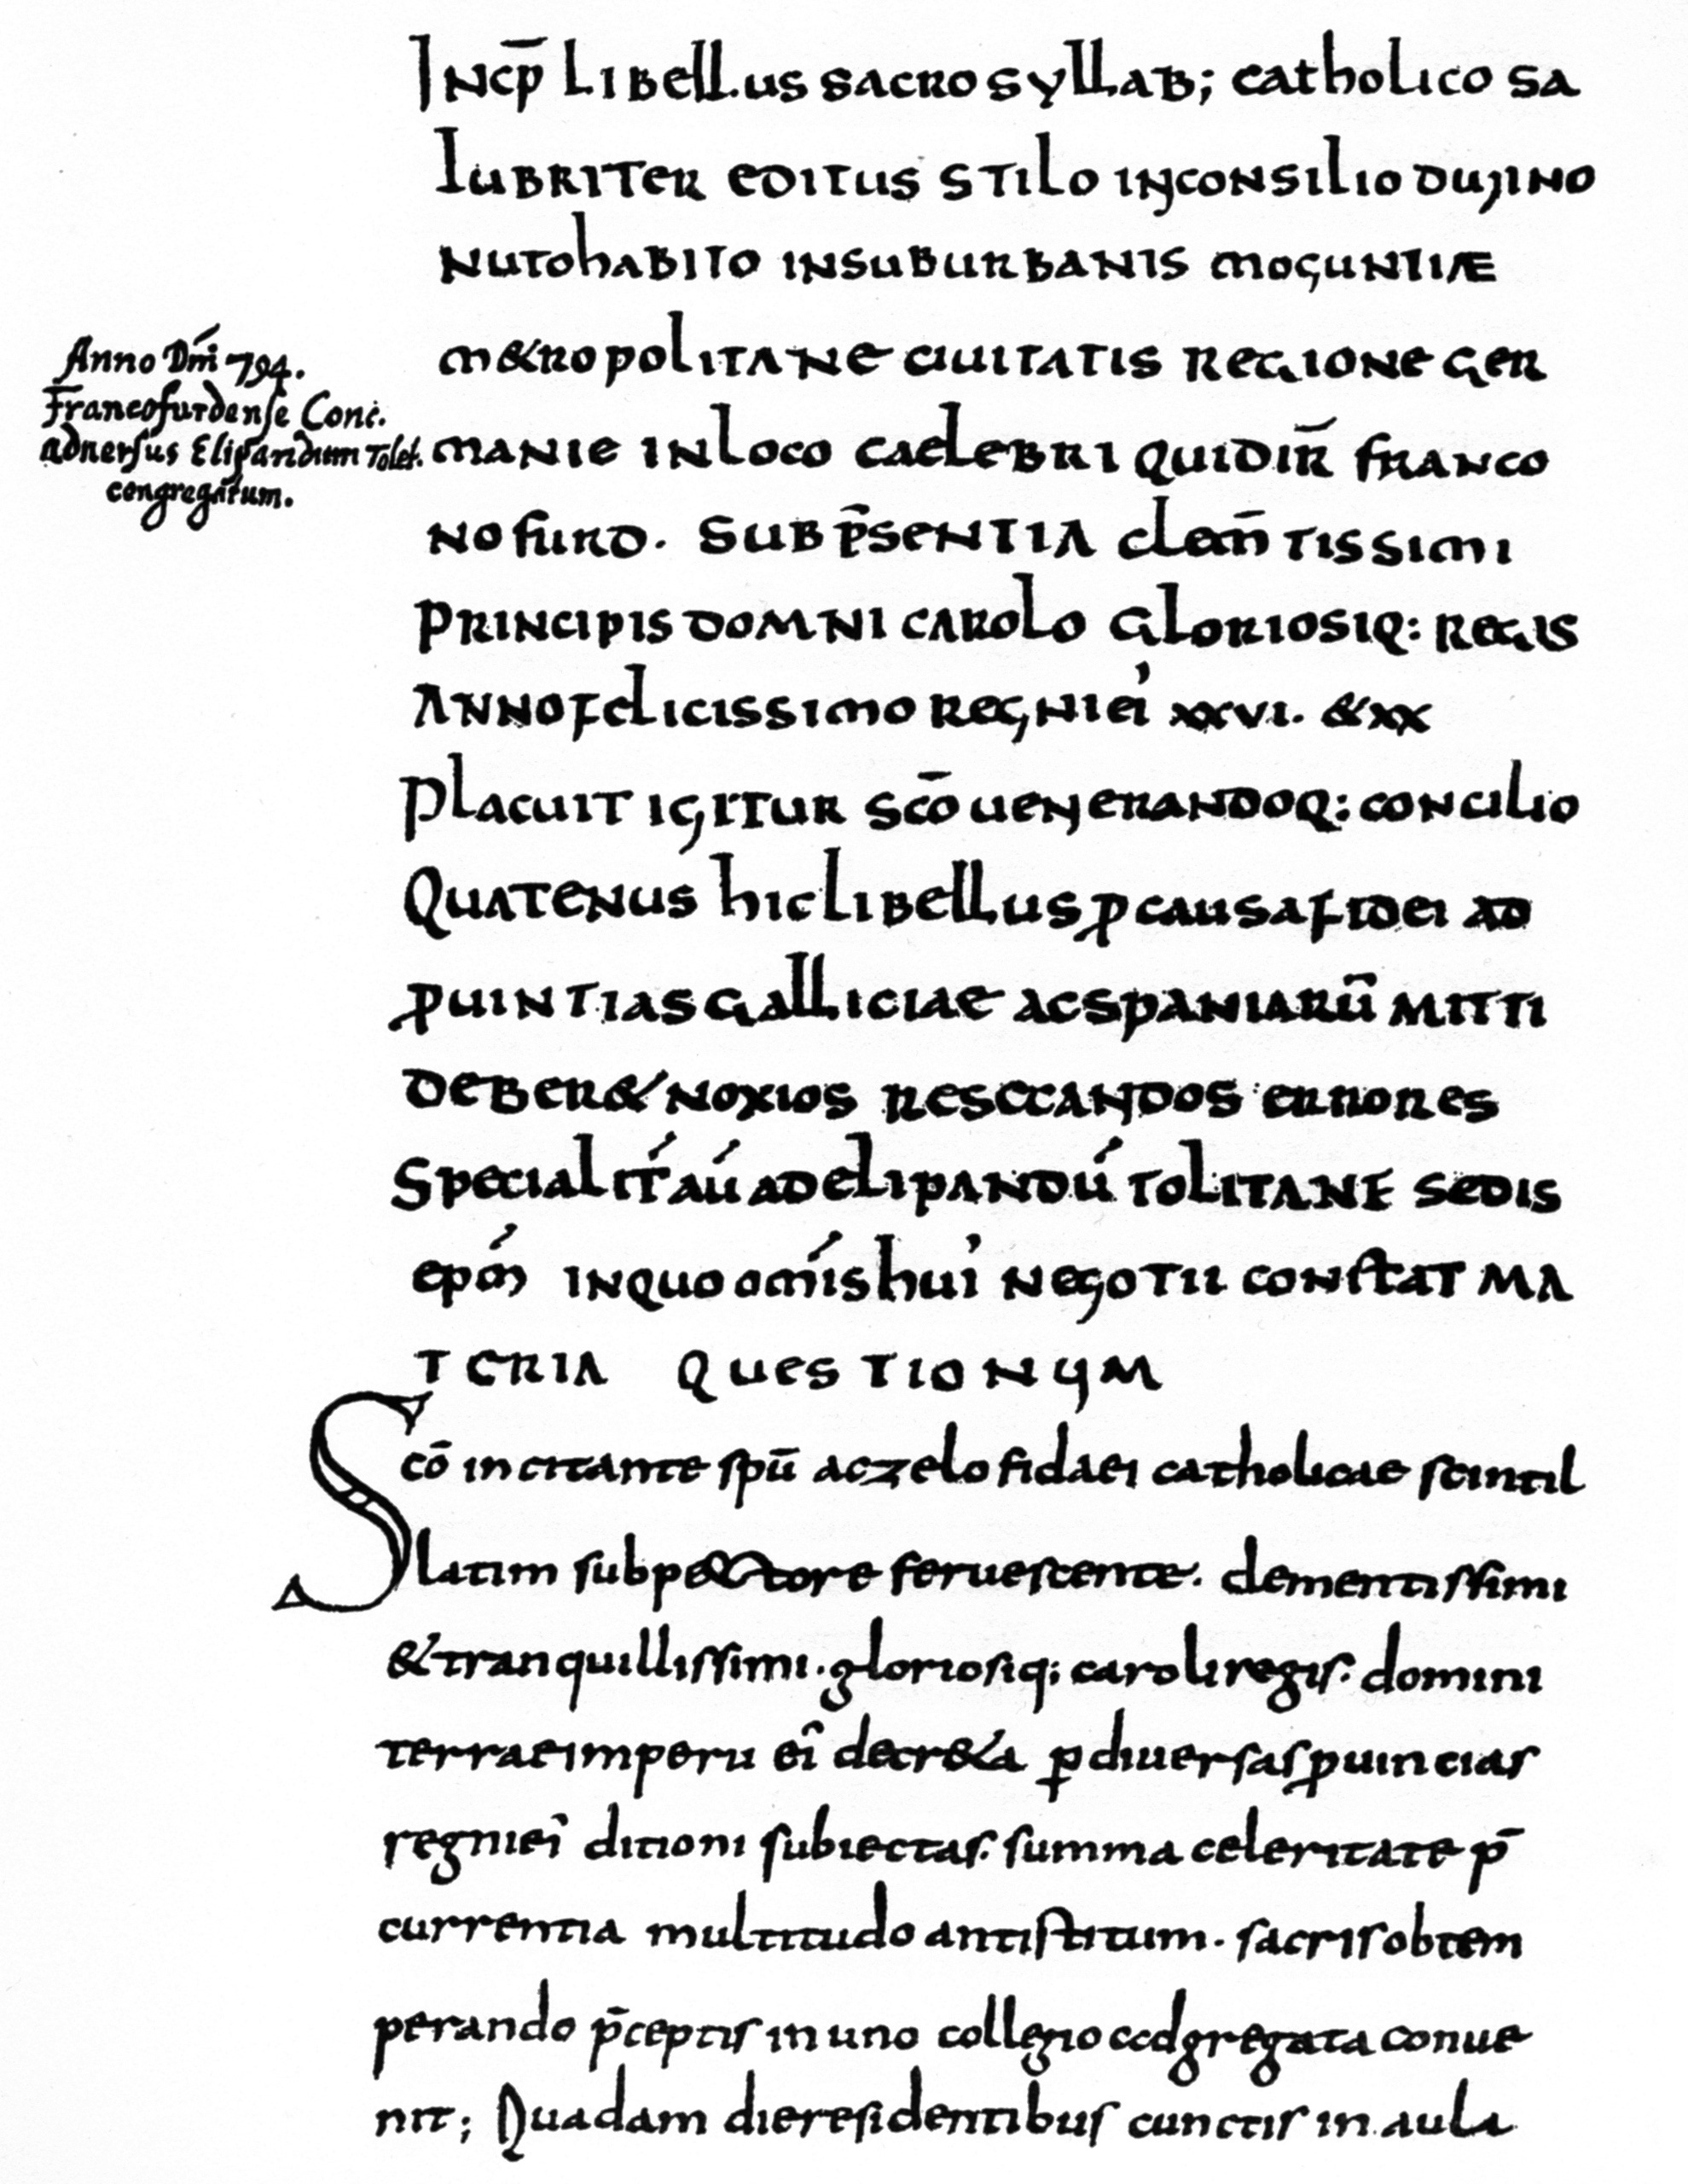 INCP̄ LIBELLUS SACROSYLLAB; CATHOLICO SA
LUBRITER EDITUS STILO INCONSILIO DUJINO
NUTOHABITO INSUBURBANIS MOGUNTIÆ
M&ROPOLITANE CIUITATIS REGIONE GER
Anno Dm̄i 794.
Francofurdense Conc.
adversus Elipandum Tolet.
congregatum.
MANIE INLOCO CAELEBRI QUIDIR̄ FRANCO
NOFURD. SUBP̄SENTIA CLEMN̄TISSIMI
PRINCIPIS DOMNI CAROLO GLORIOSIQ: REGIS
ANNOFELICISSIMO REGNIEI' XXVI. &XX
PLACUIT IGITUR SC̄O UENERANDOQ: CONCILIO
QUATENUS HICLIBELLUS ꝓCAUSAFIDEI AD
ꝓUINTIASGALLICIAE ACSPANIARŪ MITTI
DEBER& NOXIOS RESECANDOS ERRORES
SPECIALIT́ AÚ ADELIPANDÚ TOLITANE SEDIS
EPḾ INQUOOMŃISHUI' NEGOTII CONSTAT MA
TERIA QUESTIONUM
Scō incitante spū aczelo fidaei catholicae scintil
latim subpe&tore feruescente. clementissimi
&tranquillissimi. gloriosiq; caroliregis. domini
terraeimperii eî decr&a ꝑdiuersasꝓuincias
regnieî ditioni subiectas. summa celeritate p̄
currentia multitudo antistitum. sacrisobtem
perando p̄ceptis in uno collegio cadgregata conue
nit; Quadam dieresidentibus cunctis in aula